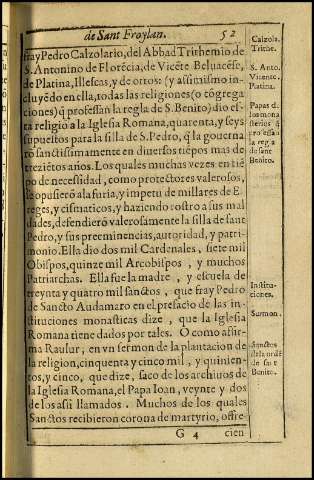 de Sant Froylan. 52
fray Pedro Calzolario, del Abbad Trithemio de
S. Antonino de Florẽcia, de Vicẽte Beluacẽse,
de Platina, Illescas, y de otros: (y assimismo in-
cluyẽdo en ella, todas las religiones (o cõgrega
ciones) q̃ professan la regla de S. Benito) dio es-
ta religiõ a la Iglesa Romana, quarenta, y seys
supuestos para la silla de S. Pedro, q̃ la governa
rõ sanctissimamente en diuersos tiẽpos mas de
trezietos años. Los quales muchas vezes en tiẽ
po de necessidad, como protectores valerosos,
se opusierõ a la furia, y impetu de millares de E
reges, y cismaticos, y haziendo rostro a sus mal
dades, defendierõ valerosamente la silla de sant
Pedro, y sus preeminencias, autoridad, y patri-
monio. Ella dio dos mil Cardenales, siete mil
Obispos, quinze mil Arcobispos, y muchos
Patriarchas. Ella fue la madre, y escuela de
treynta y quatro mil sanctos, que fray Pedro
de Sancto Audamaro en el prefacio de las ins-
tituciones monasticas dize, que la Iglesia
Romana tiene dados por tales. O como afir-
ma Raulur, en vn sermon de la plantacion de
la religion, cinquenta y cinco mil, y quinien-
tos, y cinco, que dize, saco de los archiuos de
la Iglesia Romana, el Papa Ioan, veynte y dos
de los assi llamados. Muchos de los quales
Sanctos recibieron corona de martyrio, offre-
G 4 cien
Calzola.
Trithe.
S. Anto.
Vicente.
Platina.
Papas d̃
los mona
sterios q̃
professan
la regla
de sant
Benito.
Institu-
ciones.
Sermon.
Sanctos
de la ordẽ
de sant
Benito.